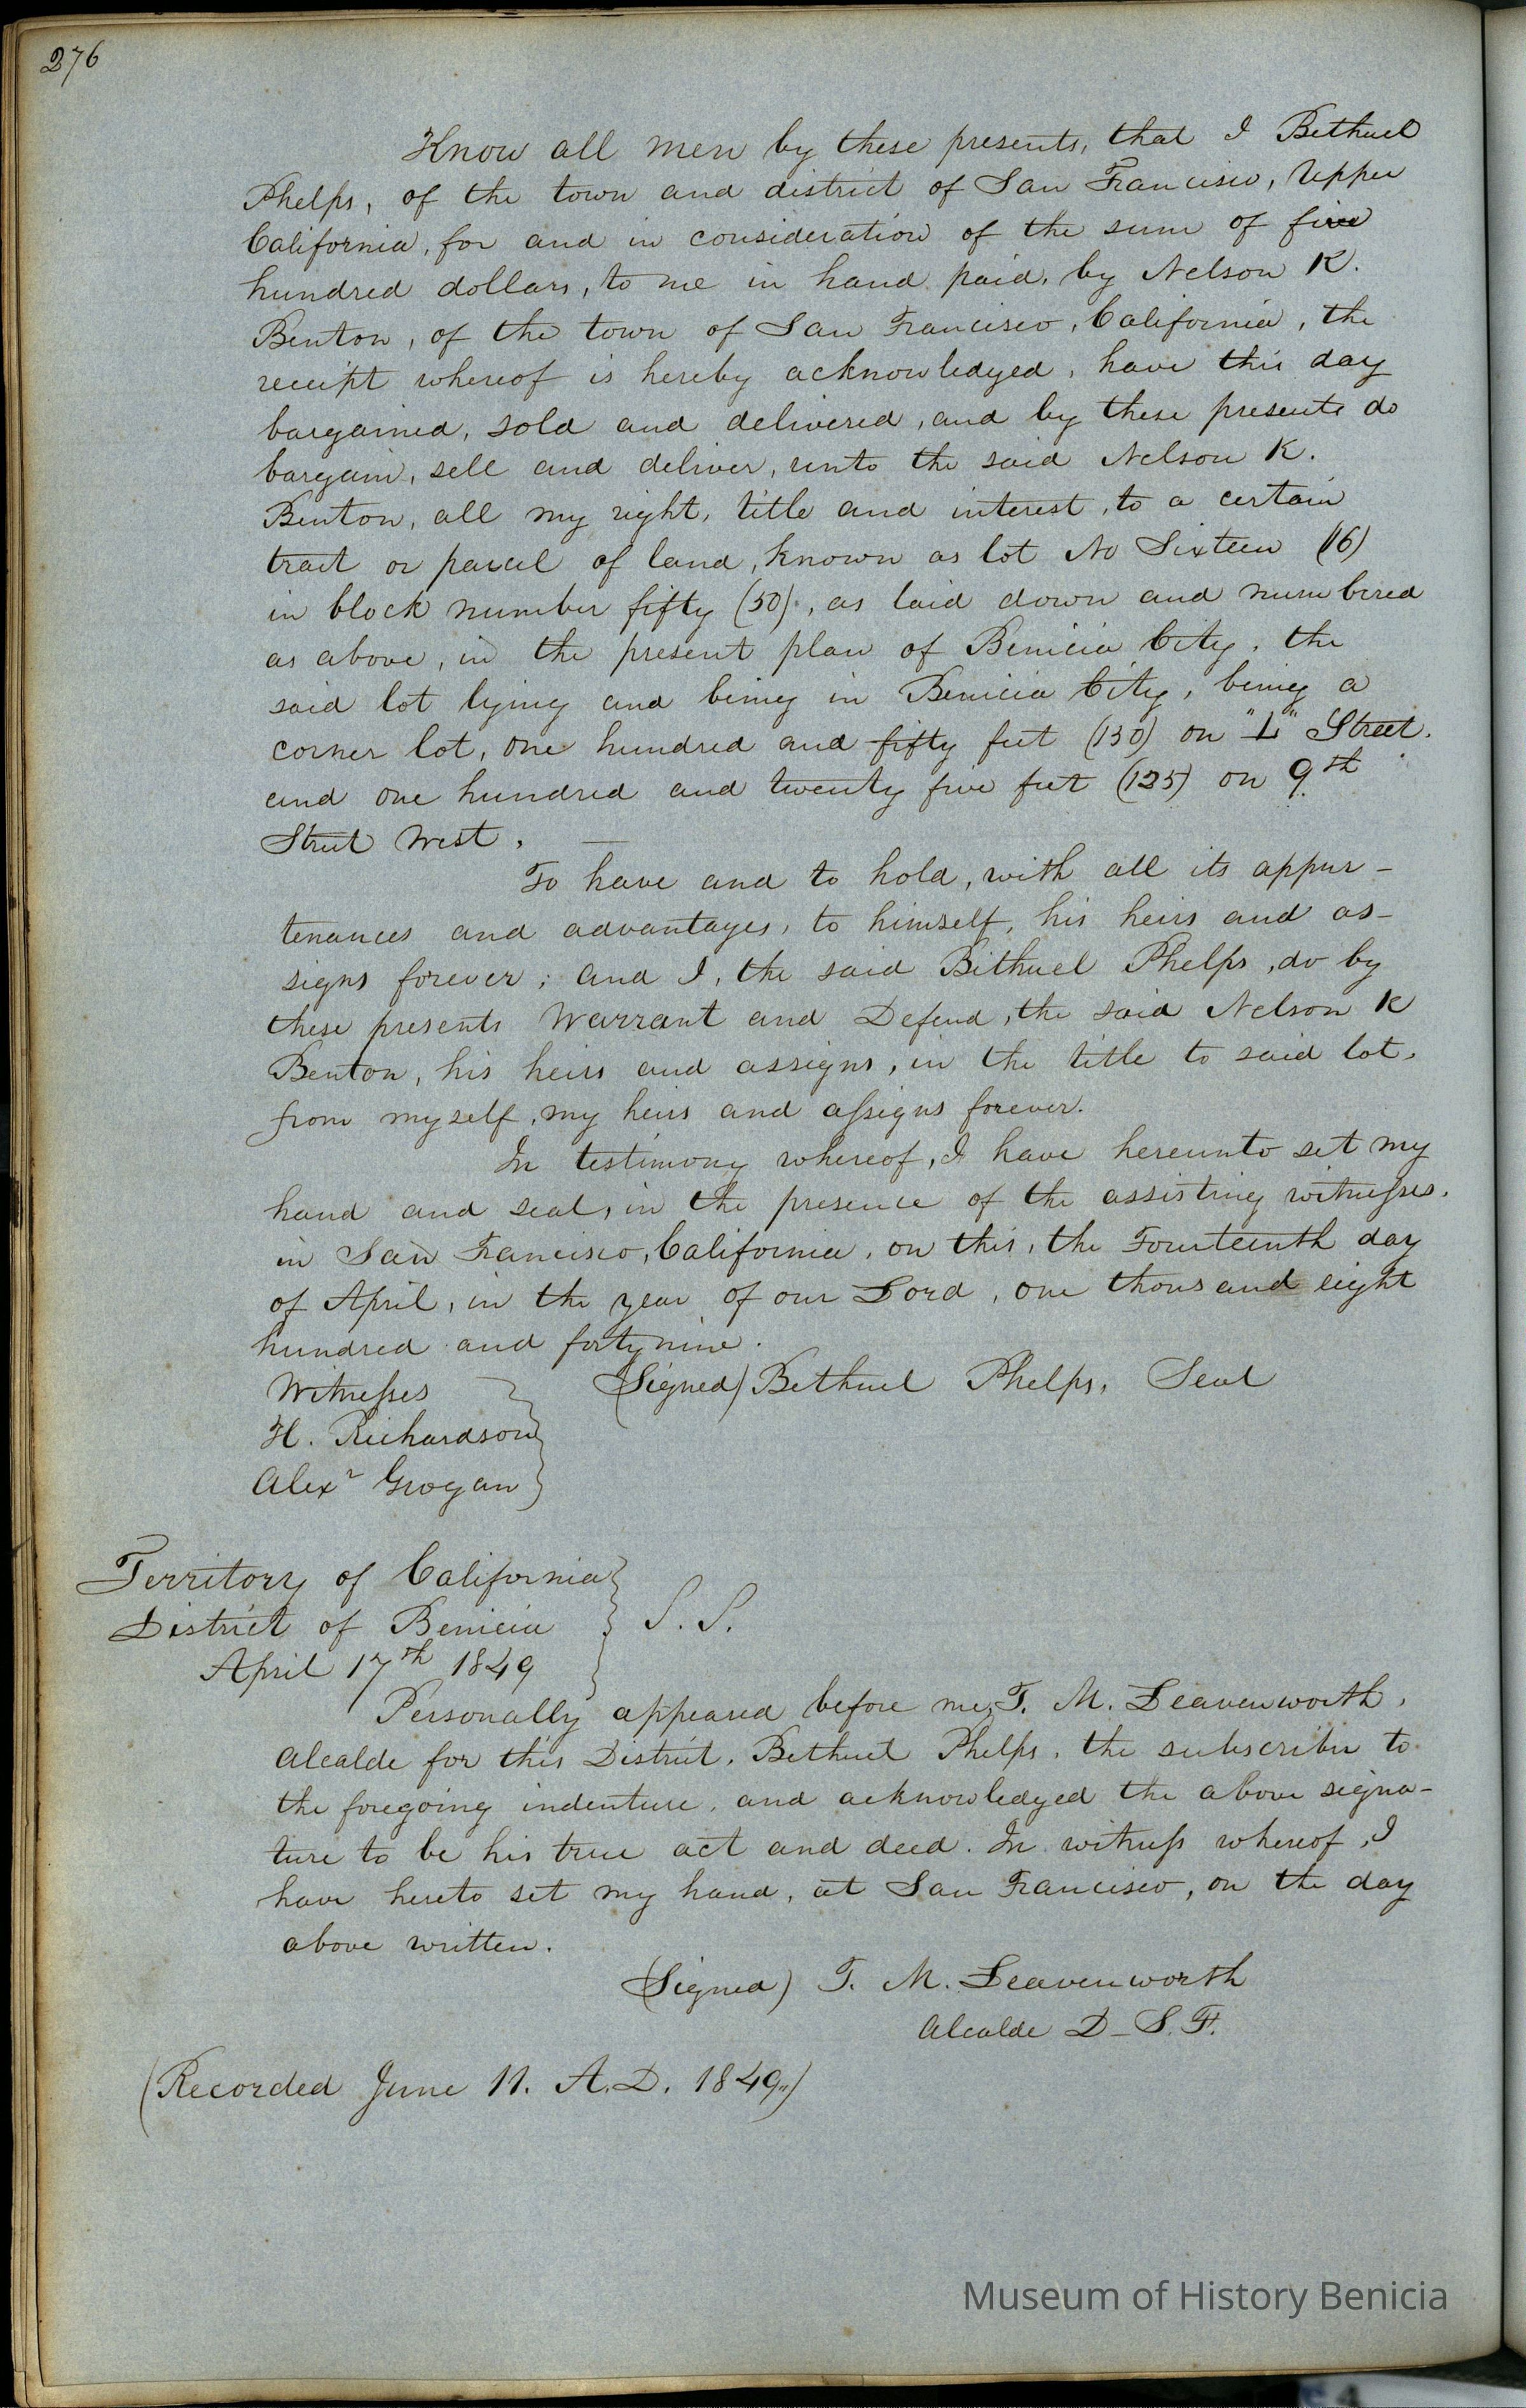 276
Know all men by these presents, that I Bethuel
Phelps, of the town and district of San Francisco, Upper
California, for and in consideration of the sum of five
hundred dollars, to me in hand paid, by Nelson K.
Benton, of the town of San Francisco, California, the
receipt whereof is hereby acknowledged, have this day
bargained, sold and delivered, and by these presents do
bargain, sell and deliver, unto the said Nelson K.
Benton, all my right, title and interest, to a certain
tract or parcel of land, known as lot No Sixteen (16)
in block number fifty (50), as laid down and numbered
as above, in the present plan of Benicia City, the
said lot lying and being in Benicia City, being a
corner lot, one hundred and fifty feet (150) on "L" Street.
and one hundred and twenty five feet (125) on 9th
Street West.
To have and to hold, with all its appur-
tenances and advantages, to himself, his heirs and as-
signs forever; and I, the said Bethuel Phelps, do by
these presents Warrant and Defend, the said Nelson K
Benton, his heirs and assigns, in the title to said lot,
from myself, my heirs and assigns forever.
In testimony whereof, I have hereunto set my
hand and seal, in the presence of the assisting witnesses,
in San Francisco, California, on this, the Fourteenth day
of April, in the year of our Lord, one thousand eight
hundred and forty nine.
Witnesses (Signed) Bethuel Phelps, Seal
H. Richardson
Alexr Grogan
Territory of California
District of Benicia S.S.
April 17th 1849
Personally appeared before me, T. M. Leavenworth,
Alcalde for this District, Bethuel Phelps, the subscriber to
the foregoing indenture, and acknowledged the above signa-
ture to be his true act and deed. In witness whereof, I
have hereto set my hand, at San Francisco, on the day
above written.
(Signed) T. M. Leavenworth
Alcalde D-S.F.
(Recorded June 11. A.D. 1849.)
Museum of History Benicia